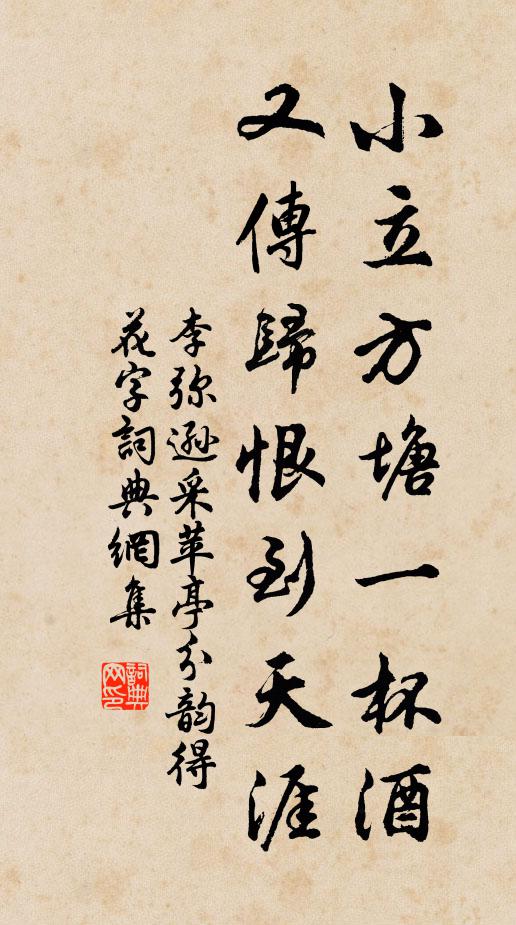 小立方塘一杯酒
又傳歸恨到天涯
李弥遜采苹亭分韵得
花字詞典網集
詞典网印